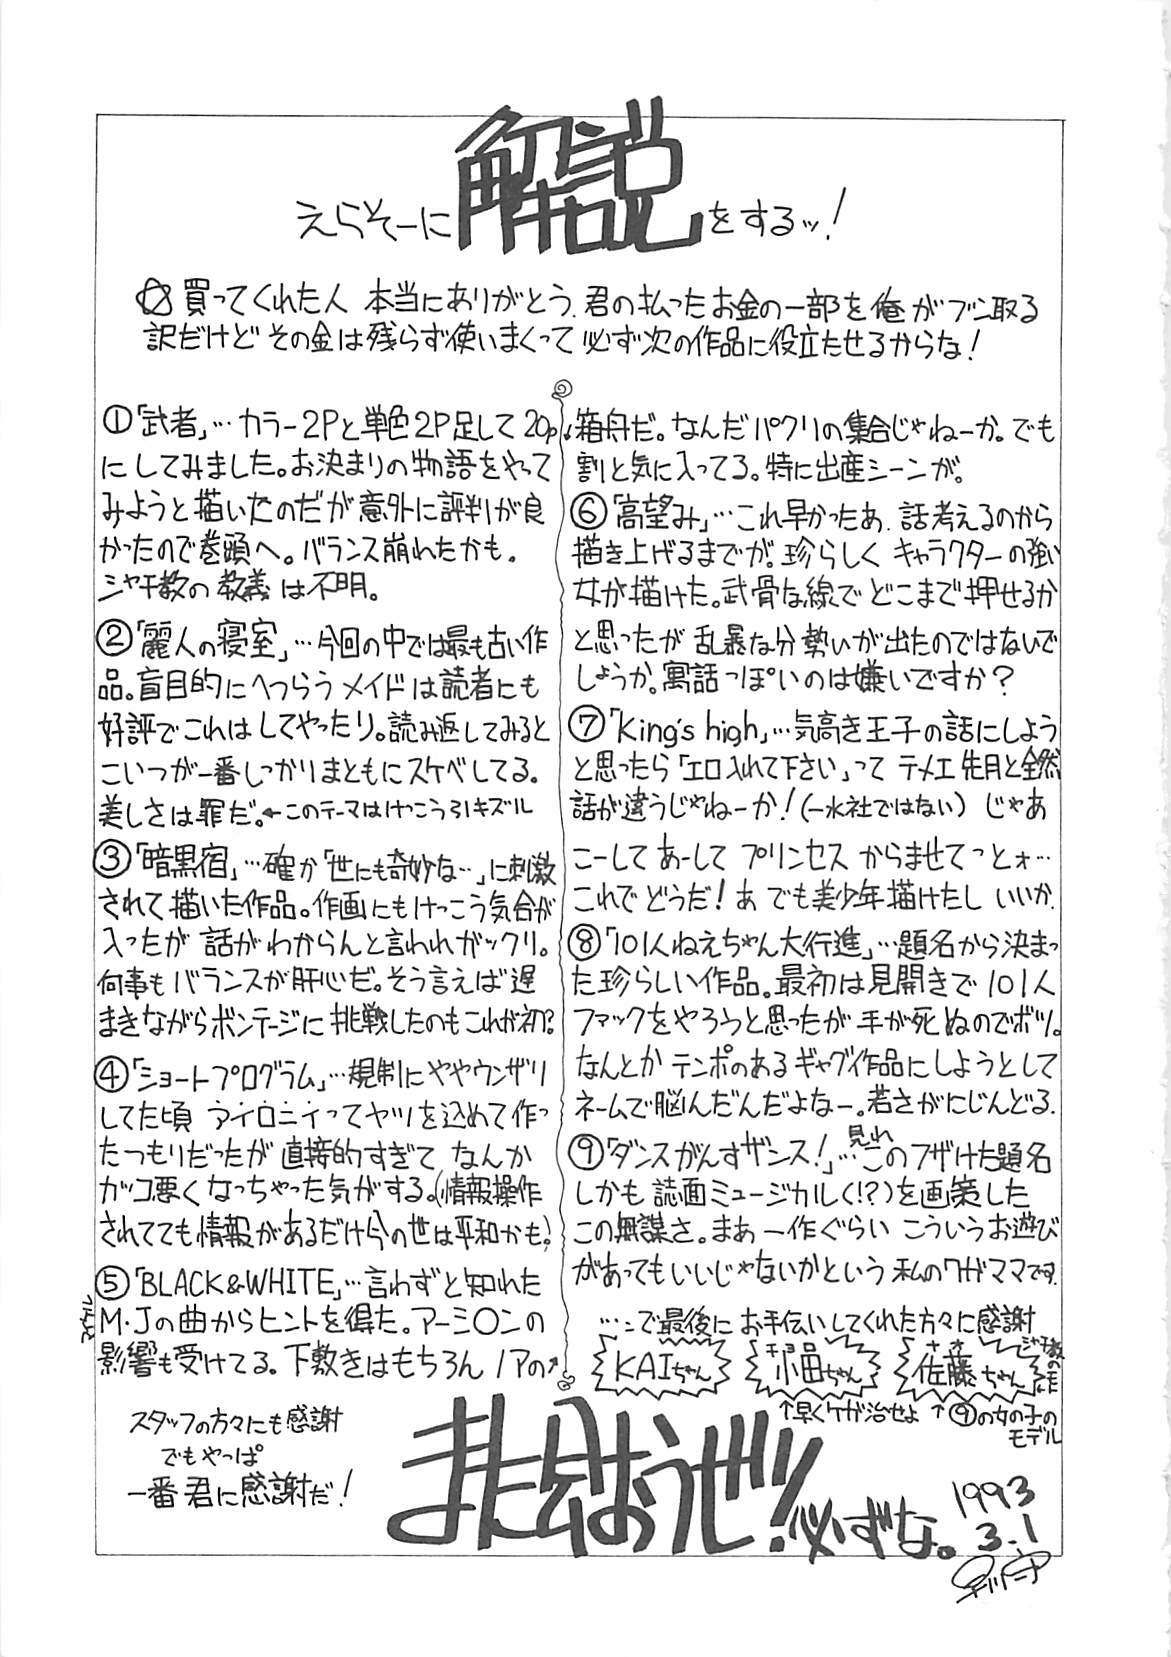 えらそーに解説をするッ!
☆買ってくれた人 本当にありがとう. 君の払ったお金の一部を俺がブン取る
訳だけど その金は残らず使いまくって 必ず次の作品に役立たせるからな!
①「武者」…カラー2Pと単色2P足して20p
にしてみました。お決まりの物語をやって
みようと描いたのだが意外に評判が良
かったので巻頭へ。バランス崩れたかも。
シャチ教の教義は不明。
②「麗人の寝室」…今回の中では最も古い作
品。盲目的にへつらうメイドは読者にも
好評でこれはしてやったり。読み返してみると
こいつが一番しっかりまともにスケベしてる。
美しさは罪だ。←このテーマはけっこう引キズル
③「暗黒宿」…確か「世にも奇妙な…」に刺激
されて描いた作品。作画にもけっこう気合が
入ったが 話がわからんと言われガックリ。
何事もバランスが肝心だ。そう言えば遅
まきながらボンテージに挑戦したのもこれが初?
④「ショートプログラム」…規制にややウンザリ
してた頃 アイロニィってヤツを込めて作っ
たつもりだったが 直接的すぎて なんか
カッコ悪くなっちゃった気がする。(情報操作
されてても情報があるだけ今の世は平和かも)
⑤「BLACK&WHITE」…言わずと知れた
M・Jの曲からヒントを得た。アーミ○ンの
影響も受けてる。下敷きはもちろんノアの↗
↓箱舟だ。なんだパクリの集合じゃねーか。でも
割と気に入ってる。特に出産シーンが。
⑥「高望み」…これ早かったあ. 話考えるのから
描き上げるまでが. 珍らしく キャラクターの強い
女が描けた。武骨な線でどこまで押せるか
と思ったが 乱暴な分勢いが出たのではないで
しょうか。寓話っぽいのは嫌いですか?
⑦「King's high」…気高き王子の話にしよう
と思ったら「エロ入れて下さい」って テメエ先月と全然
話が違うじゃねーか!(一水社ではない) じゃあ
こーして あーして プリンセス からませてっとォ…
これでどうだ! あ でも美少年描けたし いいか.
⑧「101人ねえちゃん大行進」…題名から決まっ
た珍らしい作品。最初は見開きで101人
ファックをやろうと思ったが手が死ぬのでボツ。
なんとか テンポのあるギャグ作品にしようとして
ネームで悩んだんだよなー。若さがにじんどる.
⑨「ダンスがんすザンス!」…見れ このフザけた題名
しかも 誌面ミュージカル(!?)を画策した
この無謀さ。まあ 一作ぐらい こういうお遊び
があってもいいじゃないかという 私のワガママです.
…で最後に お手伝いしてくれた方々に感謝
KAIちゃん 小田ちゃん 佐藤ちゃん
↑早くケガ治せよ ↑⑨の女の子の
モデル
スタッフの方々にも感謝
でもやっぱ
一番君に感謝だ!
また会おうぜッ!! 必ずな。
1993
3.1